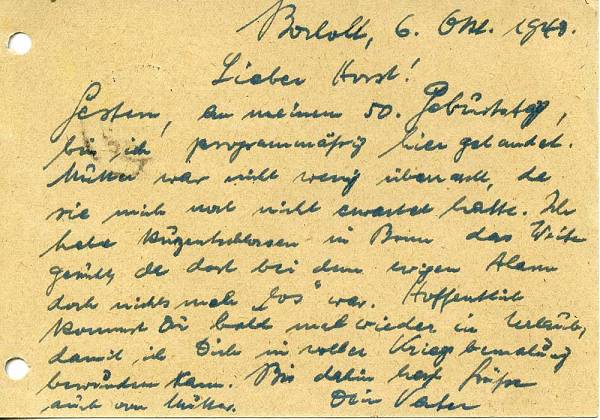 Bocholt, 6. Okt. 1940.
Lieber Horst!
Gestern, an meinem 50. Gebürtstag,
bin ich programmäßig hier gelandet.
Mütter war nicht wenig überrascht, da
sie mich noch nicht erwartet hatte. Ich
habe kürzentschlossen in Bonn das Weite
gesücht, da dort bei dem ewigen Alarm
doch nichts mehr "los" war. Hoffentlich
kommst Dü bald mal wieder in Urlaüb,
damit ich Dich in voller Kriegsbemalüng
bewündern kann. Bis dahin herzl. Grüße
aüch von Mütter. Dein Vater